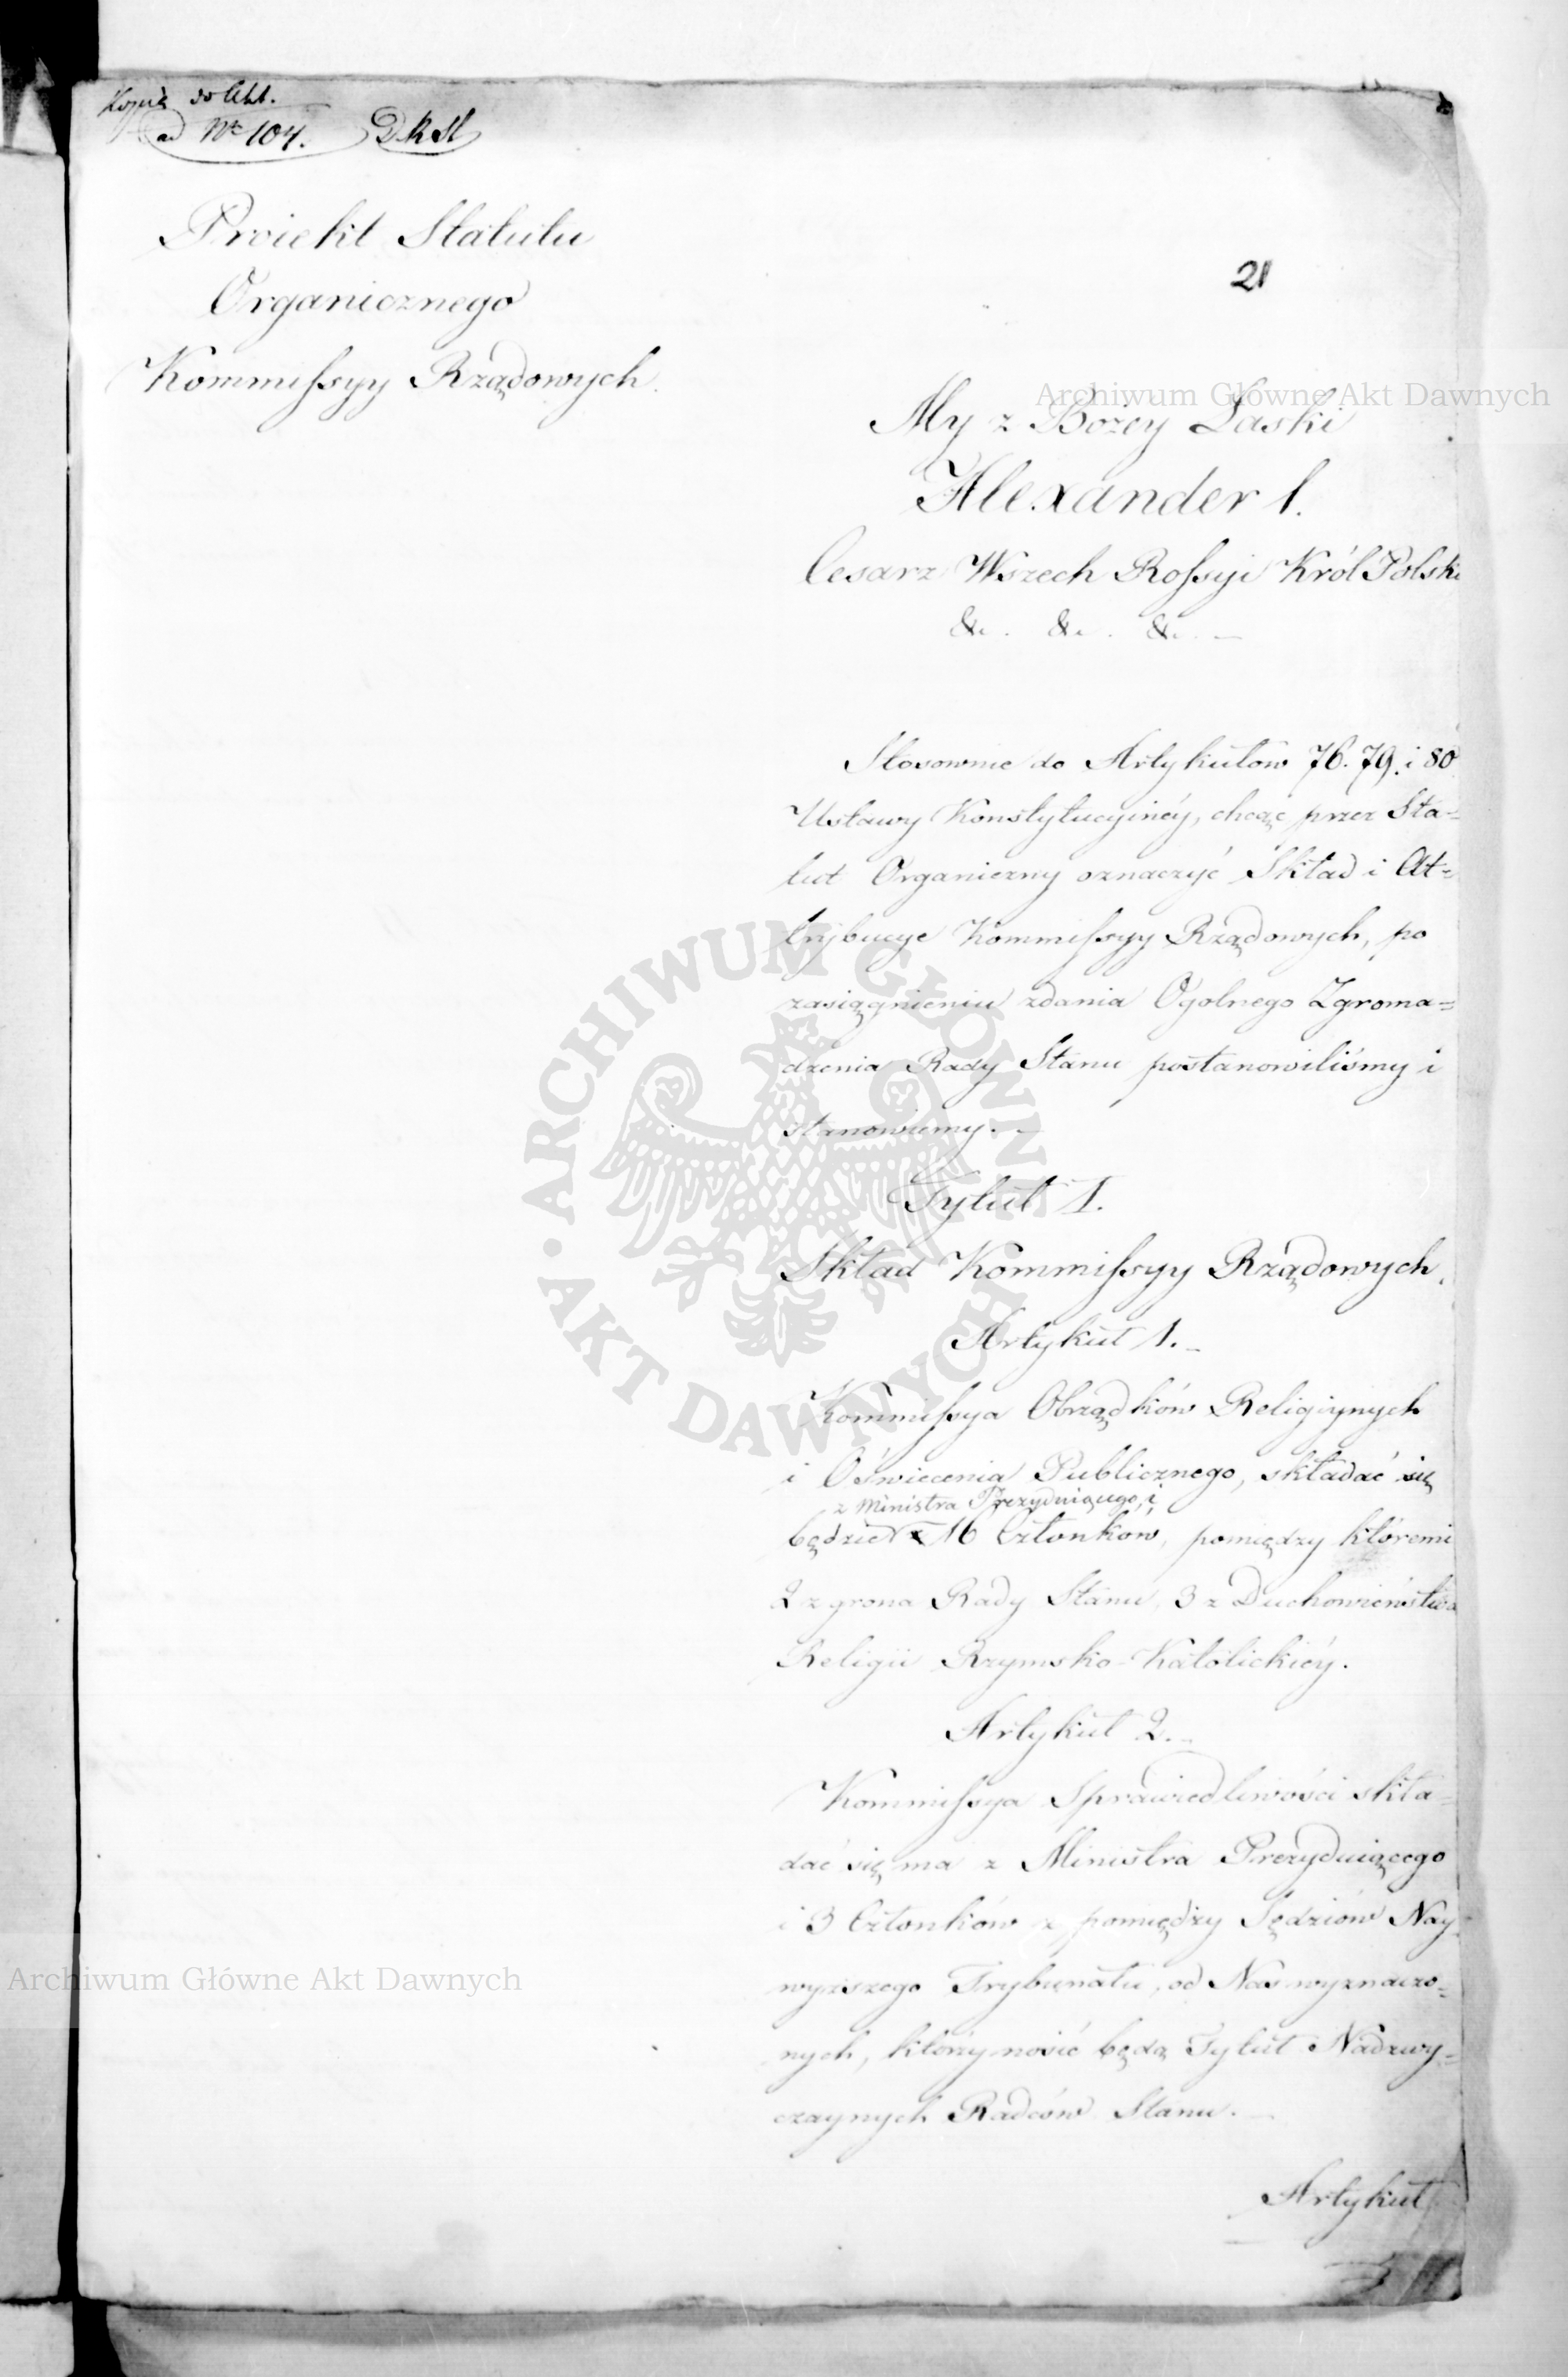 Kopia do Akt.
ad Nr 104. D.R.St
Proiekt Statutu
Organicznego
Kommissyy Rządowych.
21
Archiwum Główne Akt Dawnych
My z Bożey Łaski
Alexander I.
Cesarz Wszech Rossyi Król Polski
&c. &c. &c. —
Stosownie do Artykułów 76. 79. i 80
Ustawy Konstytucyinéy, chcąc przez Sta=
tut Organiczny oznaczyć Skład i At=
trybucye Kommissyy Rządowych, po
zasiągnieniu zdania Ogolnego Zgroma=
dzenia Rady Stanu postanowiliśmy i
stanowiemy. —
Tytuł I.
Skład Kommissyy Rządowych.
Artykuł 1. —
Kommissya Obrządków Religiynych
i Oświecenia Publicznego, składać się
z Ministra Prezyduiącego, i
będzie z 16 Członkow, pomiędzy któremi
2 z grona Rady Stanu, 3 z Duchowieństwa
Religii Rzymsko-Katolickiéy.
Artykuł 2. —
Kommissya Sprawiedliwości skła=
dać się ma z Ministra Prezyduiącego
i 3 Członków z pomiędzy Sędziów Nay=
wyższego Trybunału, od Nas wyznaczo=
nych, którzy nosić będą Tytuł Nadzwy=
czaynych Radców Stanu. —
Artykuł
ARCHIWUM GŁÓWNE AKT DAWNYCH
Archiwum Główne Akt Dawnych